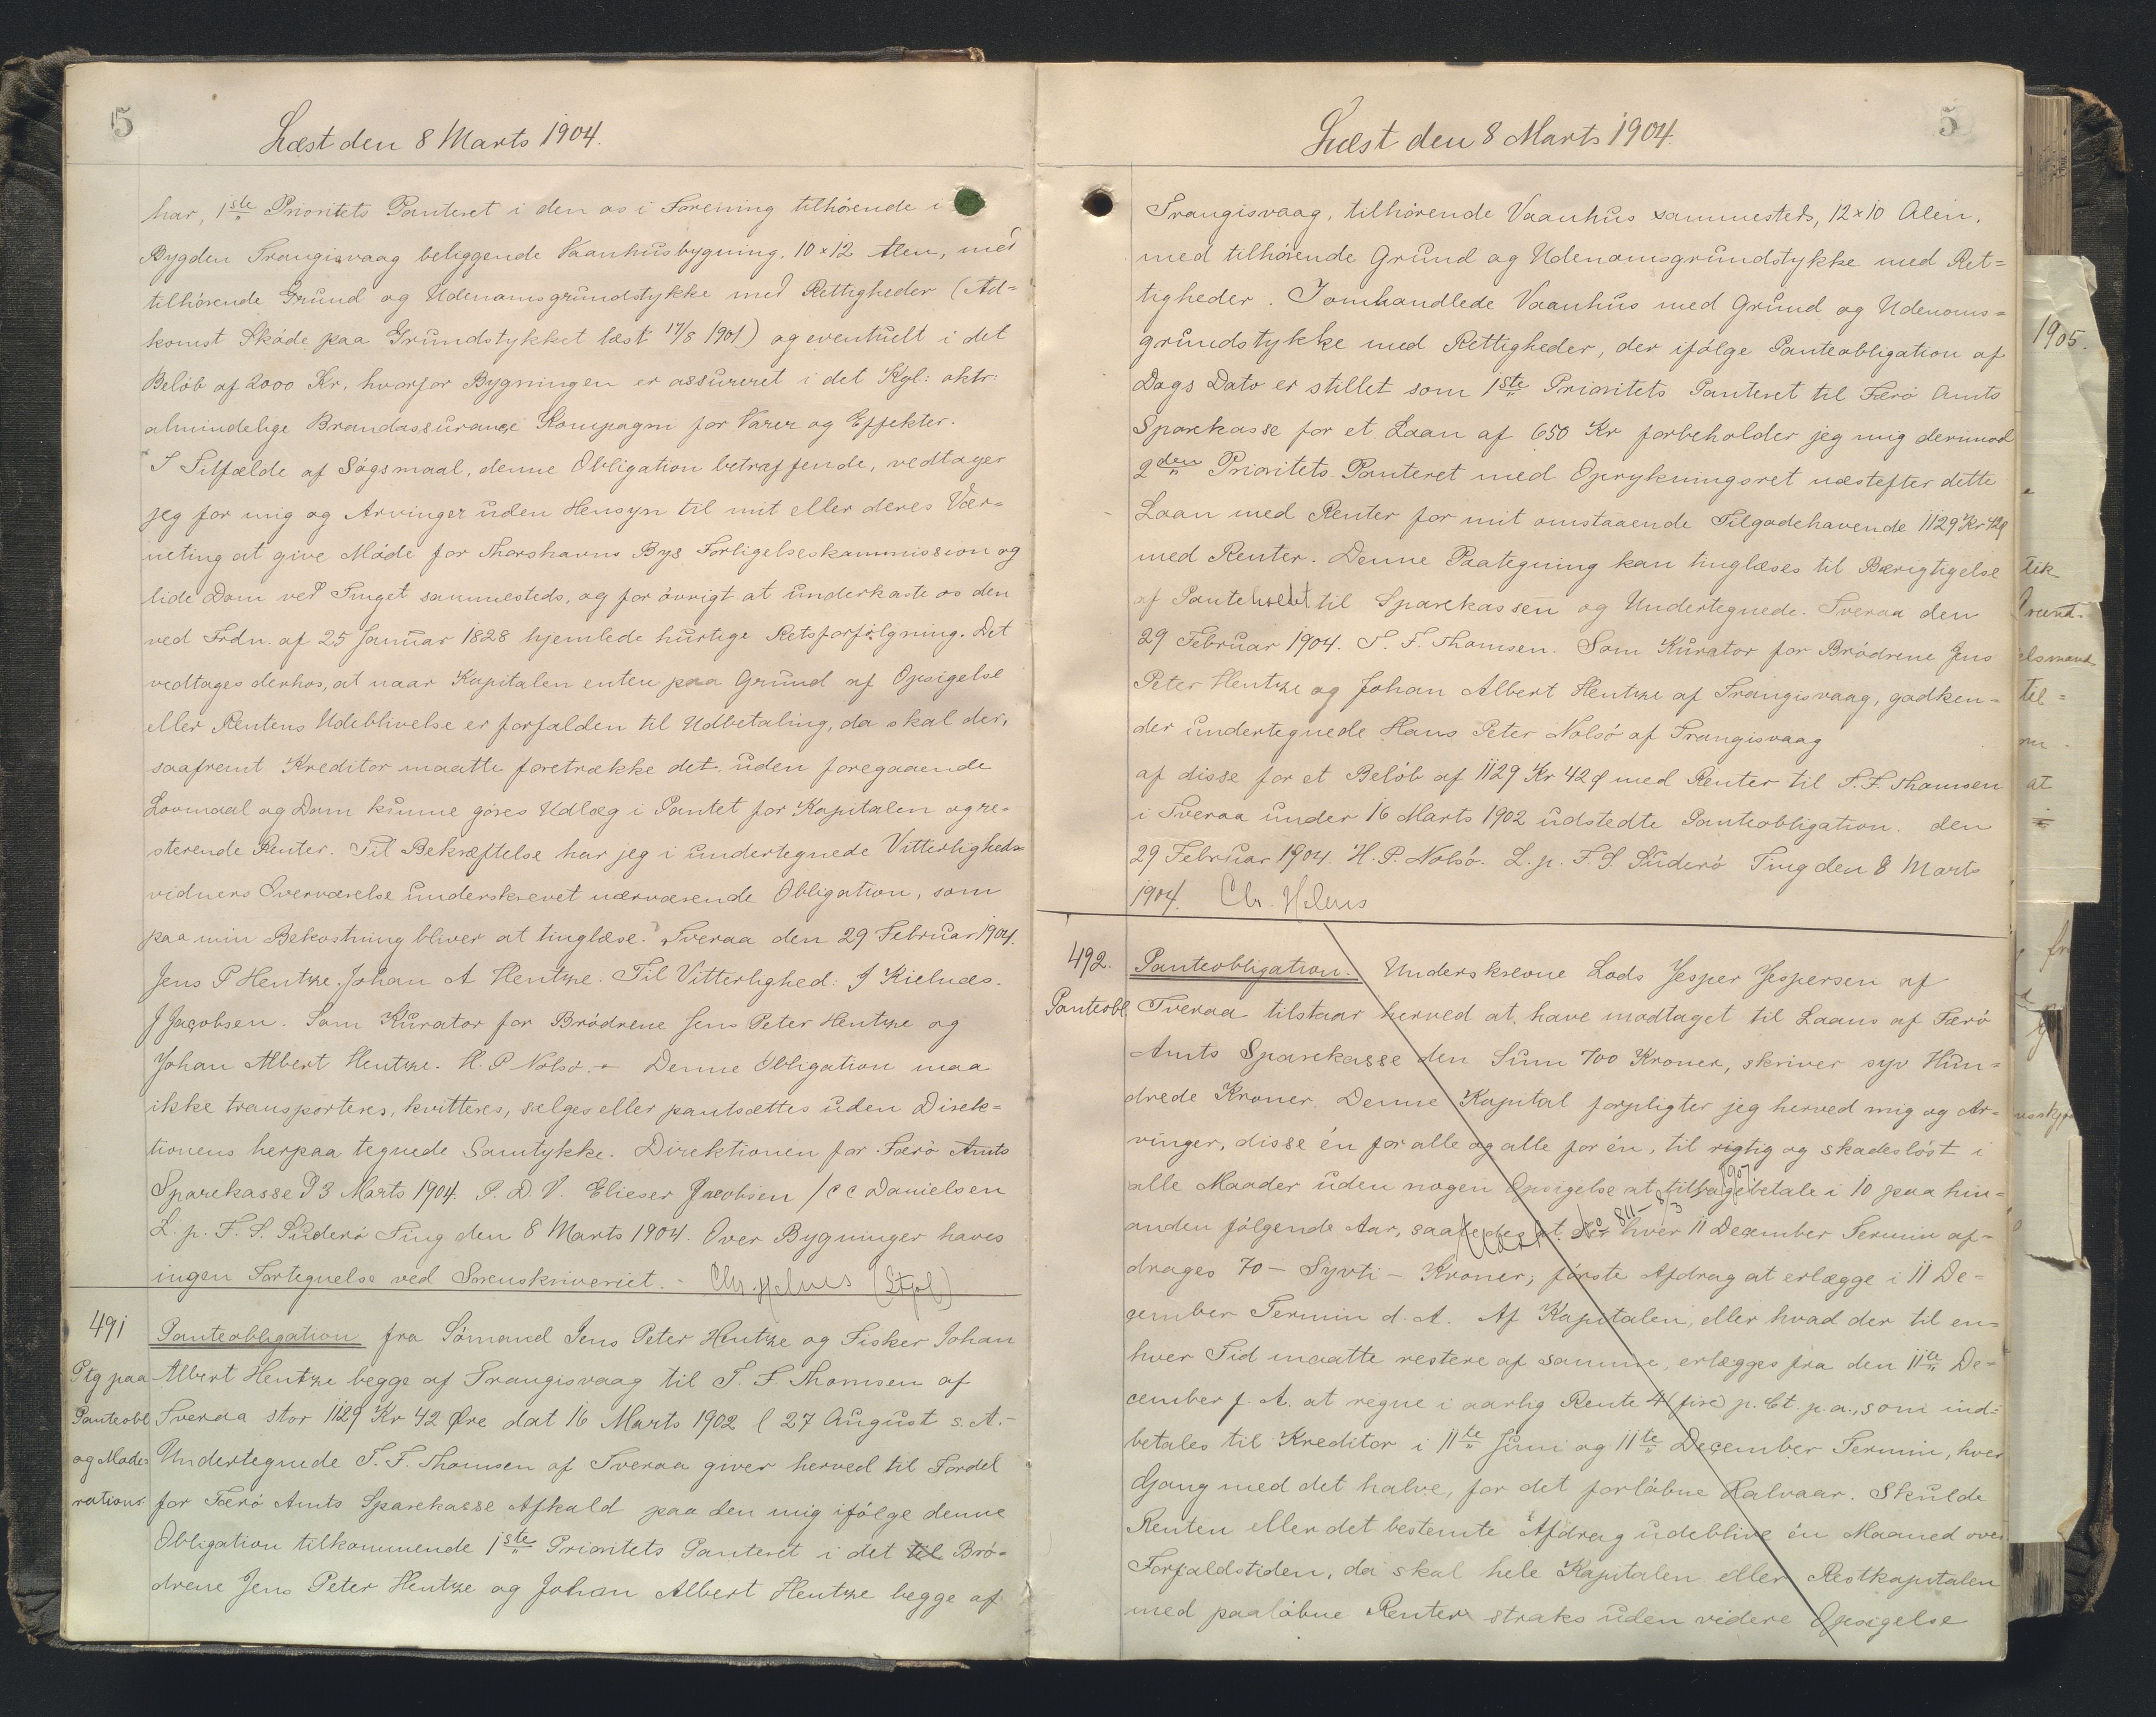 5
Læst den 8 Marts 1904.
har, 1ste Prioritets Panteret i den os i Forening tilhørende i
Bygden Trangisvaag beliggende Vaanhusbygning. 10 x 12 Alen, med
tilhørende Grund og Udenomsgrundstykke med Rettigheder (Ad=
komst Skøde paa Grundstykket læst 17/8 1901) og eventuelt i det
Beløb af 2000 Kr, hvorfor Bygningen er assureret i det Kgl: oktr:
almindelige Brandassurance Kompagni for Varer og Effekter.
I Tilfælde af Søgsmaal, denne Obligation betræffende, vedtager
jeg for mig og Arvinger uden Hensyn til mit eller deres Vær=
neting at give Møde for Thorshavns Bys Forligelseskommission og
lide Dom ved Tinget sammesteds, og for øvrigt at underkaste os den
ved Frdn. af 25 Januar 1828 hjemlede hurtige Retsforfølgning. Det
vedtages derhos, at naar Kapitalen enten paa Grund af Opsigelse
eller Rentens Udeblivelse er forfalden til Udbetaling, da skal der,
saafremt Kreditor maatte foretrække det, uden foregaaende
Lovmaal og Dom kunne gøres Udlæg i Pantet for Kapitalen og re=
sterende Renter. Til Bekræftelse har jeg i undertegnede Vitterligheds=
vidners Overværelse underskrevet nærværende Obligation, som
paa min Bekostning bliver at tinglæse. Tveraa den 29 Februar 1904.
Jens P Hentze. Johan A Hentze. Til Vitterlighed: J Kielnæs.
J Jacobsen. Som Kurator for Brødrene Jens Peter Hentze og
Johan Albert Hentze. H. P Nolsø. – Denne Obligation maa
ikke transporteres, kvitteres, sælges eller pantsættes uden Direk=
tionens herpaa tegnede Samtykke. Direktionen for Færø Amts
Sparekasse d 3 Marts 1904. P. D. V. Elieser Jacobsen / C C Danielsen
L. p. F. S. Suderø Ting den 8 Marts 1904. Over Bygninger haves
ingen Fortegnelse ved Sorenskriveriet. – Chr. Helms (Stpl)
491
Ptg paa
Panteobl
og Mode=
rations
Panteobligation fra Sømand Jens Peter Hentze og Fisker Johan
Albert Hentze begge af Trangisvaag til T. F. Thomsen af
Tveraa stor 1129 Kr 42 Øre dat 16 Marts 1902 l 27 August s. A.–
Undertegnede T. F. Thomsen af Tveraa giver herved til Fordel
for Færø Amts Sparekasse Afkald paa den mig ifølge denne
Obligation tilkommende 1ste Prioritets Panteret i det til Brø=
drene Jens Peter Hentze og Johan Albert Hentze begge af
5
Læst den 8 Marts 1904.
Trangisvaag, tilhørende Vaanhus sammesteds, 12 x 10 Alen,
med tilhørende Grund og Udenomsgrundstykke med Ret=
tigheder. I omhandlede Vaanhus med Grund og Udenoms=
grundstykke med Rettigheder, der ifølge Panteobligation af
Dags Dato er stillet som 1ste Prioritets Panteret til Færø Amts
Sparekasse for et Laan af 650 Kr forbeholder jeg mig derimod
2den Prioritets Panteret med Oprykningsret næstefter dette
Laan med Renter for mit omstaaende Tilgodehavende 1129 Kr 42 Ø
med Renter. Denne Paategning kan tinglæses til Berigtigelse
af til Sparekassen og Undertegnede. Tveraa den
29 Februar 1904. T. F. Thomsen. Som Kurator for Brødrene Jens
Peter Hentze og Johan Albert Hentze af Trangisvaag, godken=
der undertegnede Hans Peter Nolsø af Trangisvaag
af disse for et Beløb af 1129 Kr 42 Ø med Renter til T. F. Thomsen
i Tveraa under 16 Marts 1902 udstedte Panteobligation. den
29 Februar 1904. H. P. Nolsø. L. p. F. S. Suderø Ting den 8 Marts
1904. Chr. Helms
492.
Panteobl
Panteobligation. Underskrevne Lods Jesper Jespersen af
Tveraa tilstaar herved at have modtaget til Laans af Færø
Amts Sparekasse den Sum 700 Kroner, skriver syv Hun=
drede Kroner. Denne Kapital forpligter jeg herved mig og Ar=
vinger, disse én for alle og alle for én, til rigtig og skadesløst i
alle Maader uden nogen Opsigelse at tilbagebetale i 10 paa hin=
anden følgende Aar, saaledes at hver 11 December Termin af=
drages 70 – Syvti – Kroner, første Afdrag at erlægge i 11 De=
cember Termin d. A. Af Kapitalen, eller hvad der til en=
hver Tid maatte restere af samme, erlægges fra den 11te De=
cember f. A. at regne i aarlig Rente 4 (fire) p. Ct. p. a., som ind=
betales til Kreditor i 11te Juni og 11te December Termin, hver
Gang med det halve, for det forløbne Halvaar. Skulde
Renten eller det bestemte Afdrag udeblive én Maaned over
Forfaldstiden, da skal hele Kapitalen eller Restkapitalen
med paaløbne Renter straks uden videre Opsigelse
1905.